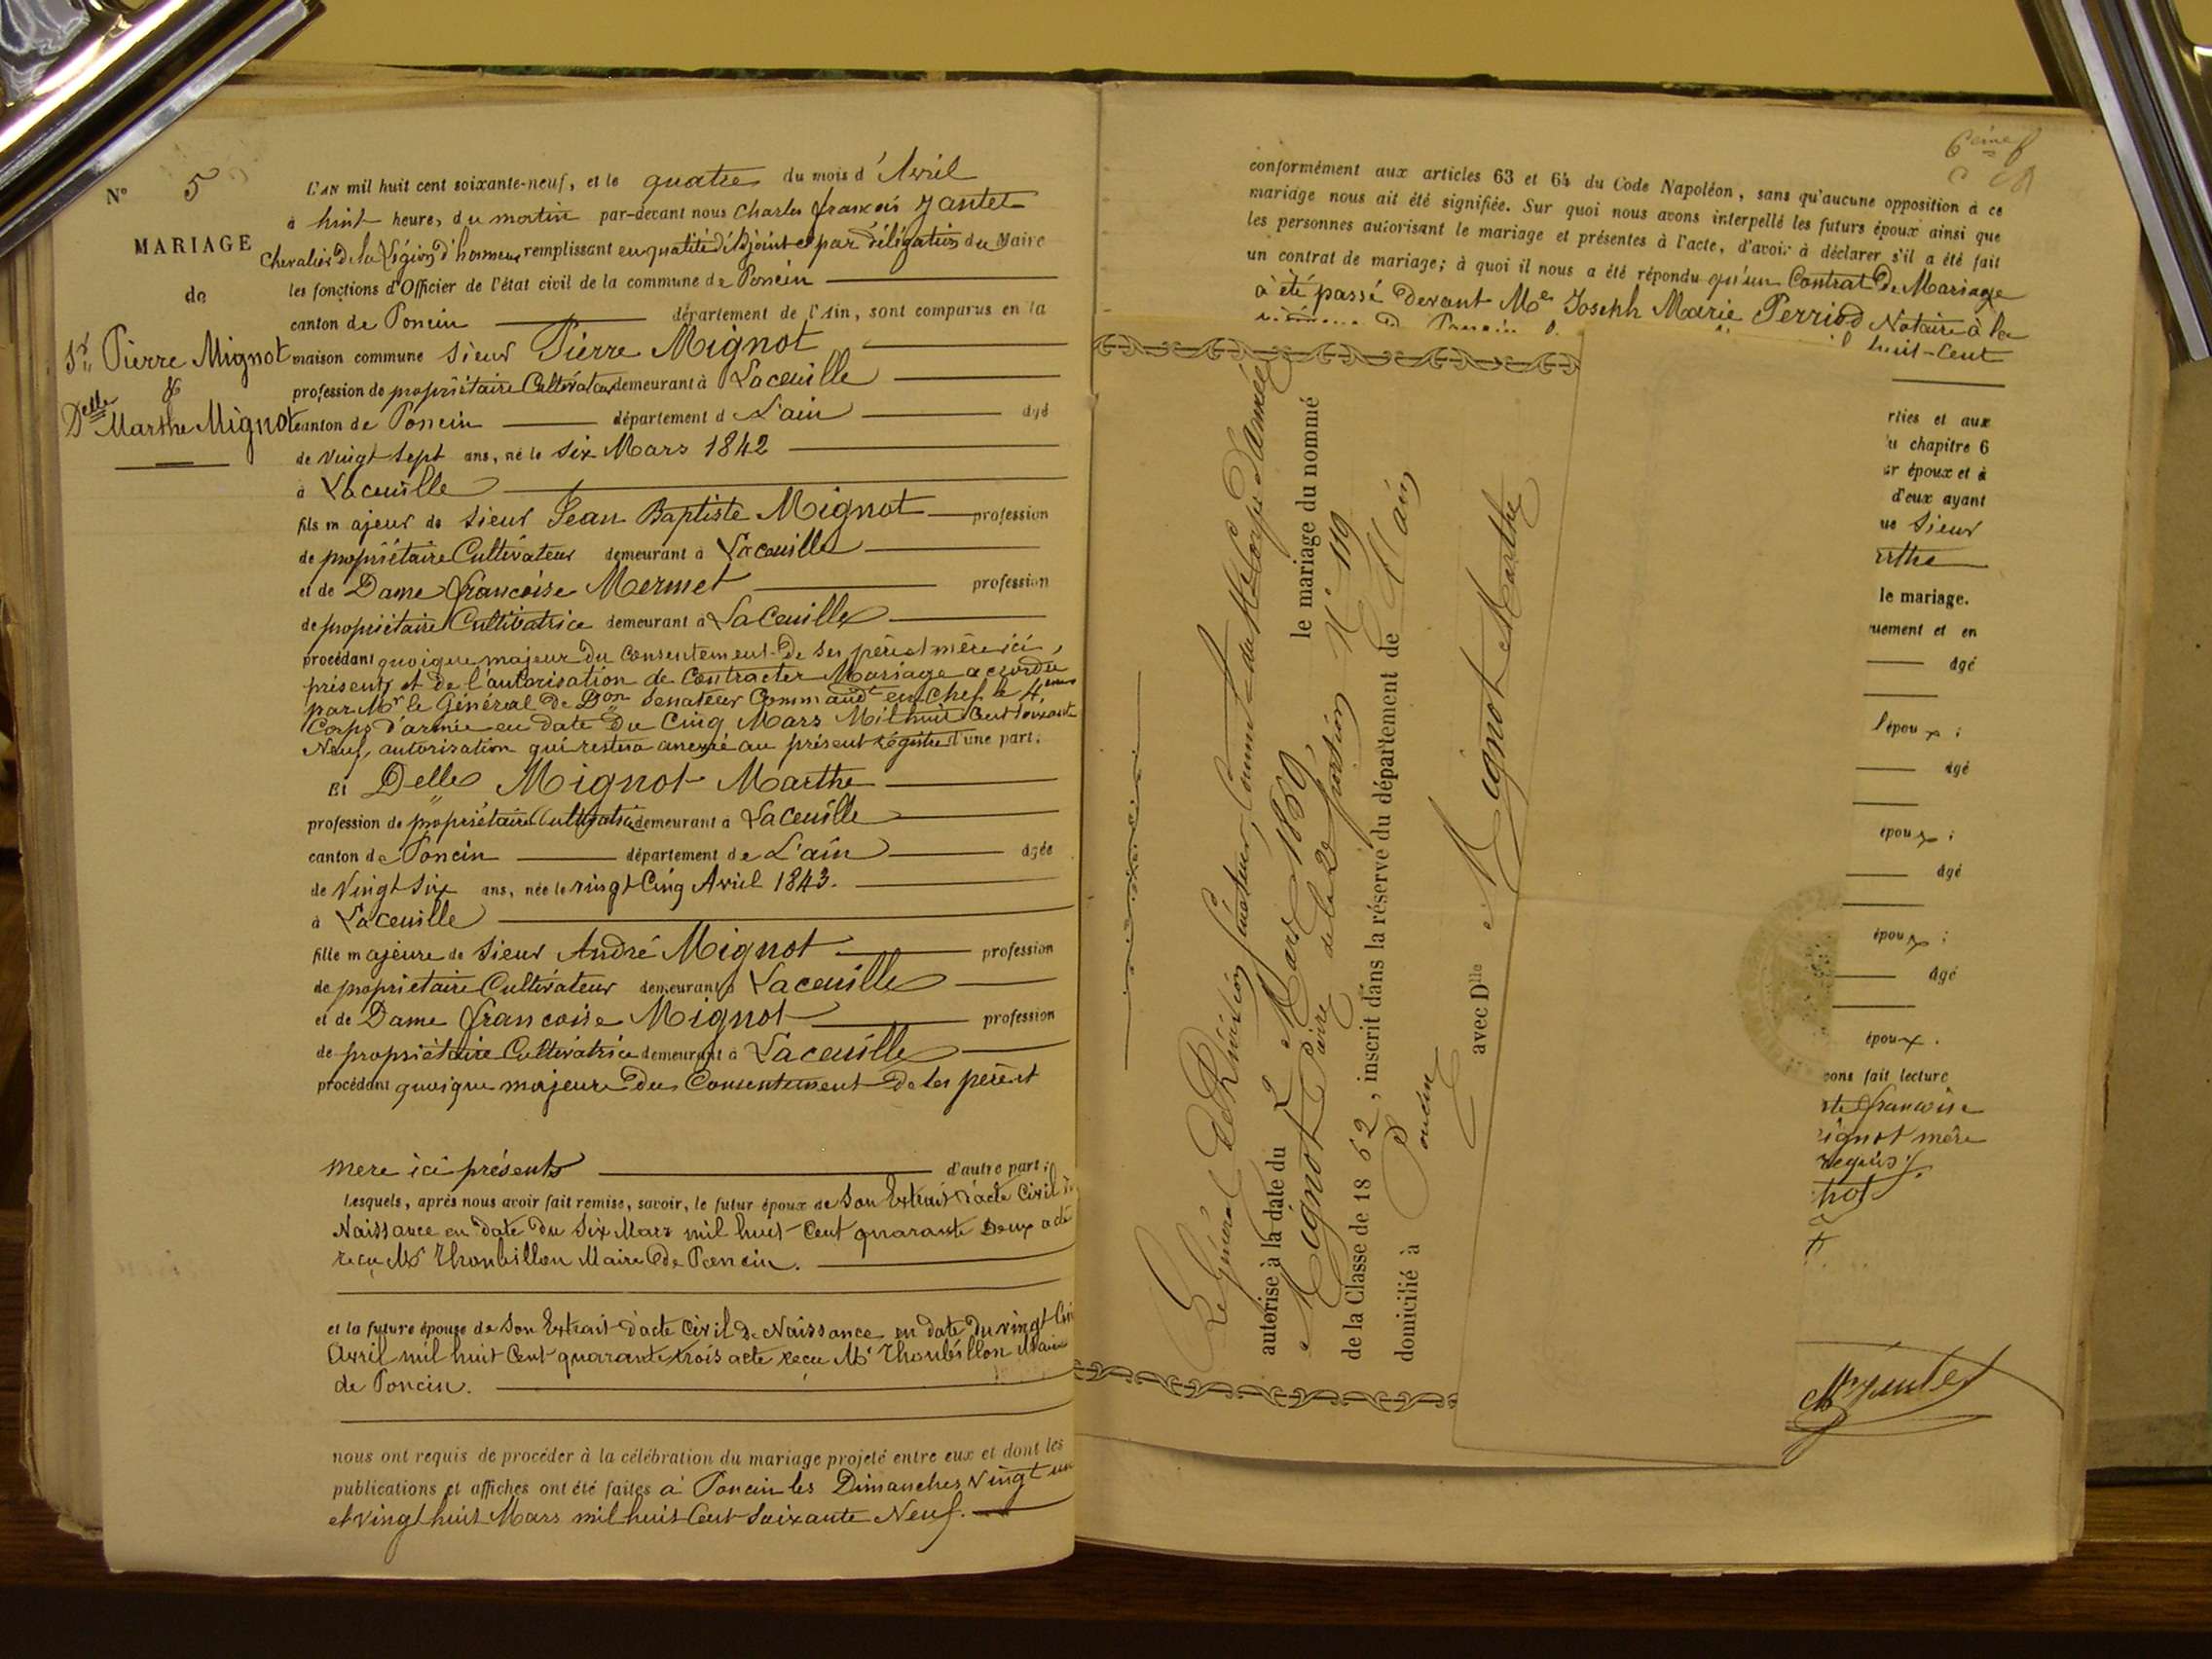 N° 5
MARIAGE
de
Sr Pierre Mignot
&
Delle Marthe Mignot
L'AN mil huit cent soixante-neuf, et le quatre du mois d'Avril
à huit heure, du matin par-devant nous Charles françois Jantet
Chevalier de la Légion d'honneur remplissant en qualité d'Adjoint et par délégation du Maire
les fonctions d'Officier de l'état civil de la commune de Poncin
canton de Poncin département de l'Ain, sont comparus en la
maison commune Sieur Pierre Mignot
profession de propriétaire Cultivateur demeurant à Lacueille
canton de Poncin département d L'ain âgé
de vingt sept ans, né le Six Mars 1842
à Lacueille
fils majeur de Sieur Jean Baptiste Mignot profession
de propriétaire Cultivateur demeurant à Lacueille
et de Dame françoise Mermet profession
de propriétaire Cultivatrice demeurant à Lacueille
procédant quoique majeur du Consentement de ses père et mère ici
présents et de l'autorisation de Contracter Mariage accordée
par Mr le Général de Don Senateur Command.t en Chef le 4.eme
Corps d'armée en date du Cinq Mars Mil huit Cent soixante
Neuf, autorisation qui restera anexée au présent registre d'une part;
Et Delle Mignot Marthe
profession de propriétaire Cultivatrice demeurant à Lacueille
canton de Poncin département de L'ain âgée
de Vingt Six ans, née le vingt Cinq Avril 1843.
à Lacueille
fille majeure de Sieur André Mignot profession
de propriétaire Cultivateur demeurant à Lacueille
et de Dame françoise Mignot profession
de propriétaire Cultivatrice demeurant à Lacueille
procédant quoique majeure du Consentement de ses père et
mere ici présents d'autre part;
Lesquels, après nous avoir fait remise, savoir, le futur époux de Son Extrait d'acte Civil de
Naissance en date du Six Mars mil huit Cent quarante Deux acte
reçu Mr Thoubillon Maire de Poncin.
et la future épouse de Son Extrait d'acte Civil de Naissance en date du vingt Cin
Avril mil huit Cent quarante trois acte reçu Mr Thoubillon Maire
de Poncin.
nous ont requis de procéder à la célébration du mariage projeté entre eux et dont les
publications et affiches ont été faites à Poncin les Dimanches Vingt un
et vingt huit Mars mil huit Cent Soixante Neuf.
6eme f
conformément aux articles 63 et 64 du Code Napoléon, sans qu'aucune opposition à ce
mariage nous ait été signifiée. Sur quoi nous avons interpellé les futurs époux ainsi que
les personnes autorisant le mariage et présentes à l'acte, d'avoir à déclarer s'il a été fait
un contrat de mariage; à quoi il nous a été répondu qu'un Contrat de Mariage
a été passé devant Me Joseph Marie Perriod Notaire à la
huit-Cent
rties et aux
u chapitre 6
ur époux et à
d'eux ayant
ue Sieur
arthe
le mariage.
uement et en
âgé
l'époux;
âgé
époux;
âgé
époux;
âgé
époux.
vons fait lecture
françoise
ignot mère
requis
not
Ch Jantet
Le Général
Sénateur, Comm.dt du 4e Corps d'armée
autorise à la date du 2 Mars 1869,
le mariage du nommé
Mignot Pierre de la 2e portion N° 119
de la Classe de 1862, inscrit dans la réserve du département de l'Ain
domicilié à Poncin
avec Dlle Mignot Marthe